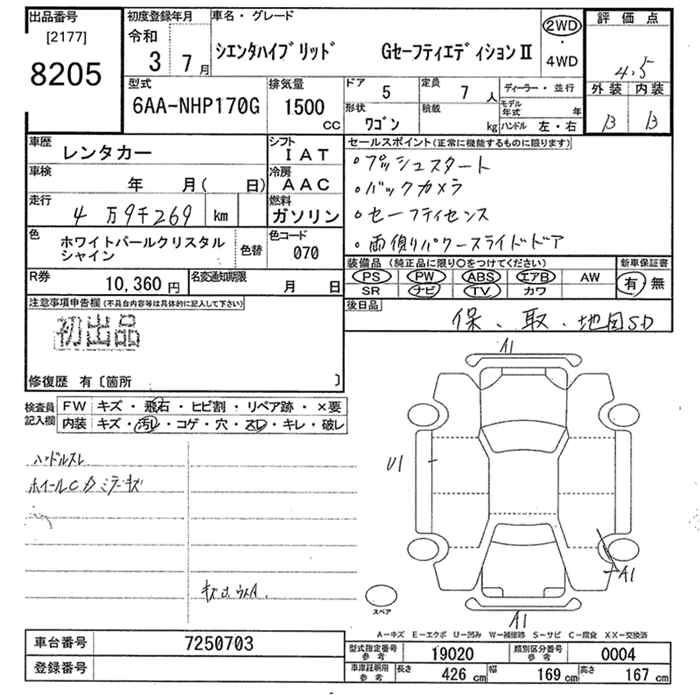 出品番号
[2177]
8205
初度登録年月
令和
3 7月
車名・グレード
シエンタハイブリッド Gセーフティエディション Ⅱ
2WD
・
4WD
評価点
4.5
外装 内装
B B
型式
6AA-NHP170G
排気量
1500
CC
ドア
5
定員
7 人
形状
ワゴン
積載
kg
ディーラー・並行
モデル年式 年
ハンドル 左・右
車歴
レンタカー
シフト
IAT
車検
年 月( 日)
冷房
AAC
走行
4万9千269 km
燃料
ガソリン
色
ホワイトパールクリスタル
シャイン
色替
色コード
070
R券
10,360 円
名変通知期限
月 日
セールスポイント(正常に機能するものに限ります)
・プッシュスタート
・バックカメラ
・セーフティセンス
・両側パワースライドドア
装備品(純正品に限り○をつけてください)
PS PW ABS エアB AW
SR ナビ TV カワ
新車保証書
有 無
後日品
保、取、地図SD
注意事項申告欄(不具合内容等は具体的に記入して下さい)
初出品
修復歴 有〔箇所 〕
検査員
記入欄
FW キズ・飛石・ヒビ割・リペア跡・×要
内装 キズ・汚レ・コゲ・穴・スレ・キレ・破レ
ハンドルスレ
ホイールC
A1
U1
A1
A1
スペア
A-キズ E-エクボ U-凹み W-補修跡 S-サビ C-腐食 XX-交換済
車台番号
7250703
登録番号
型式指定番号
参考
19020
類別区分番号
参考
0004
車庫証明用
参考
長さ
426 cm
幅
169 cm
高さ
167 cm